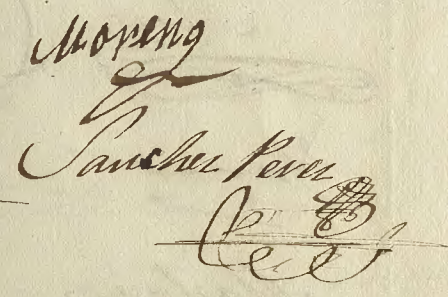 Moreno
Sanchez Perez